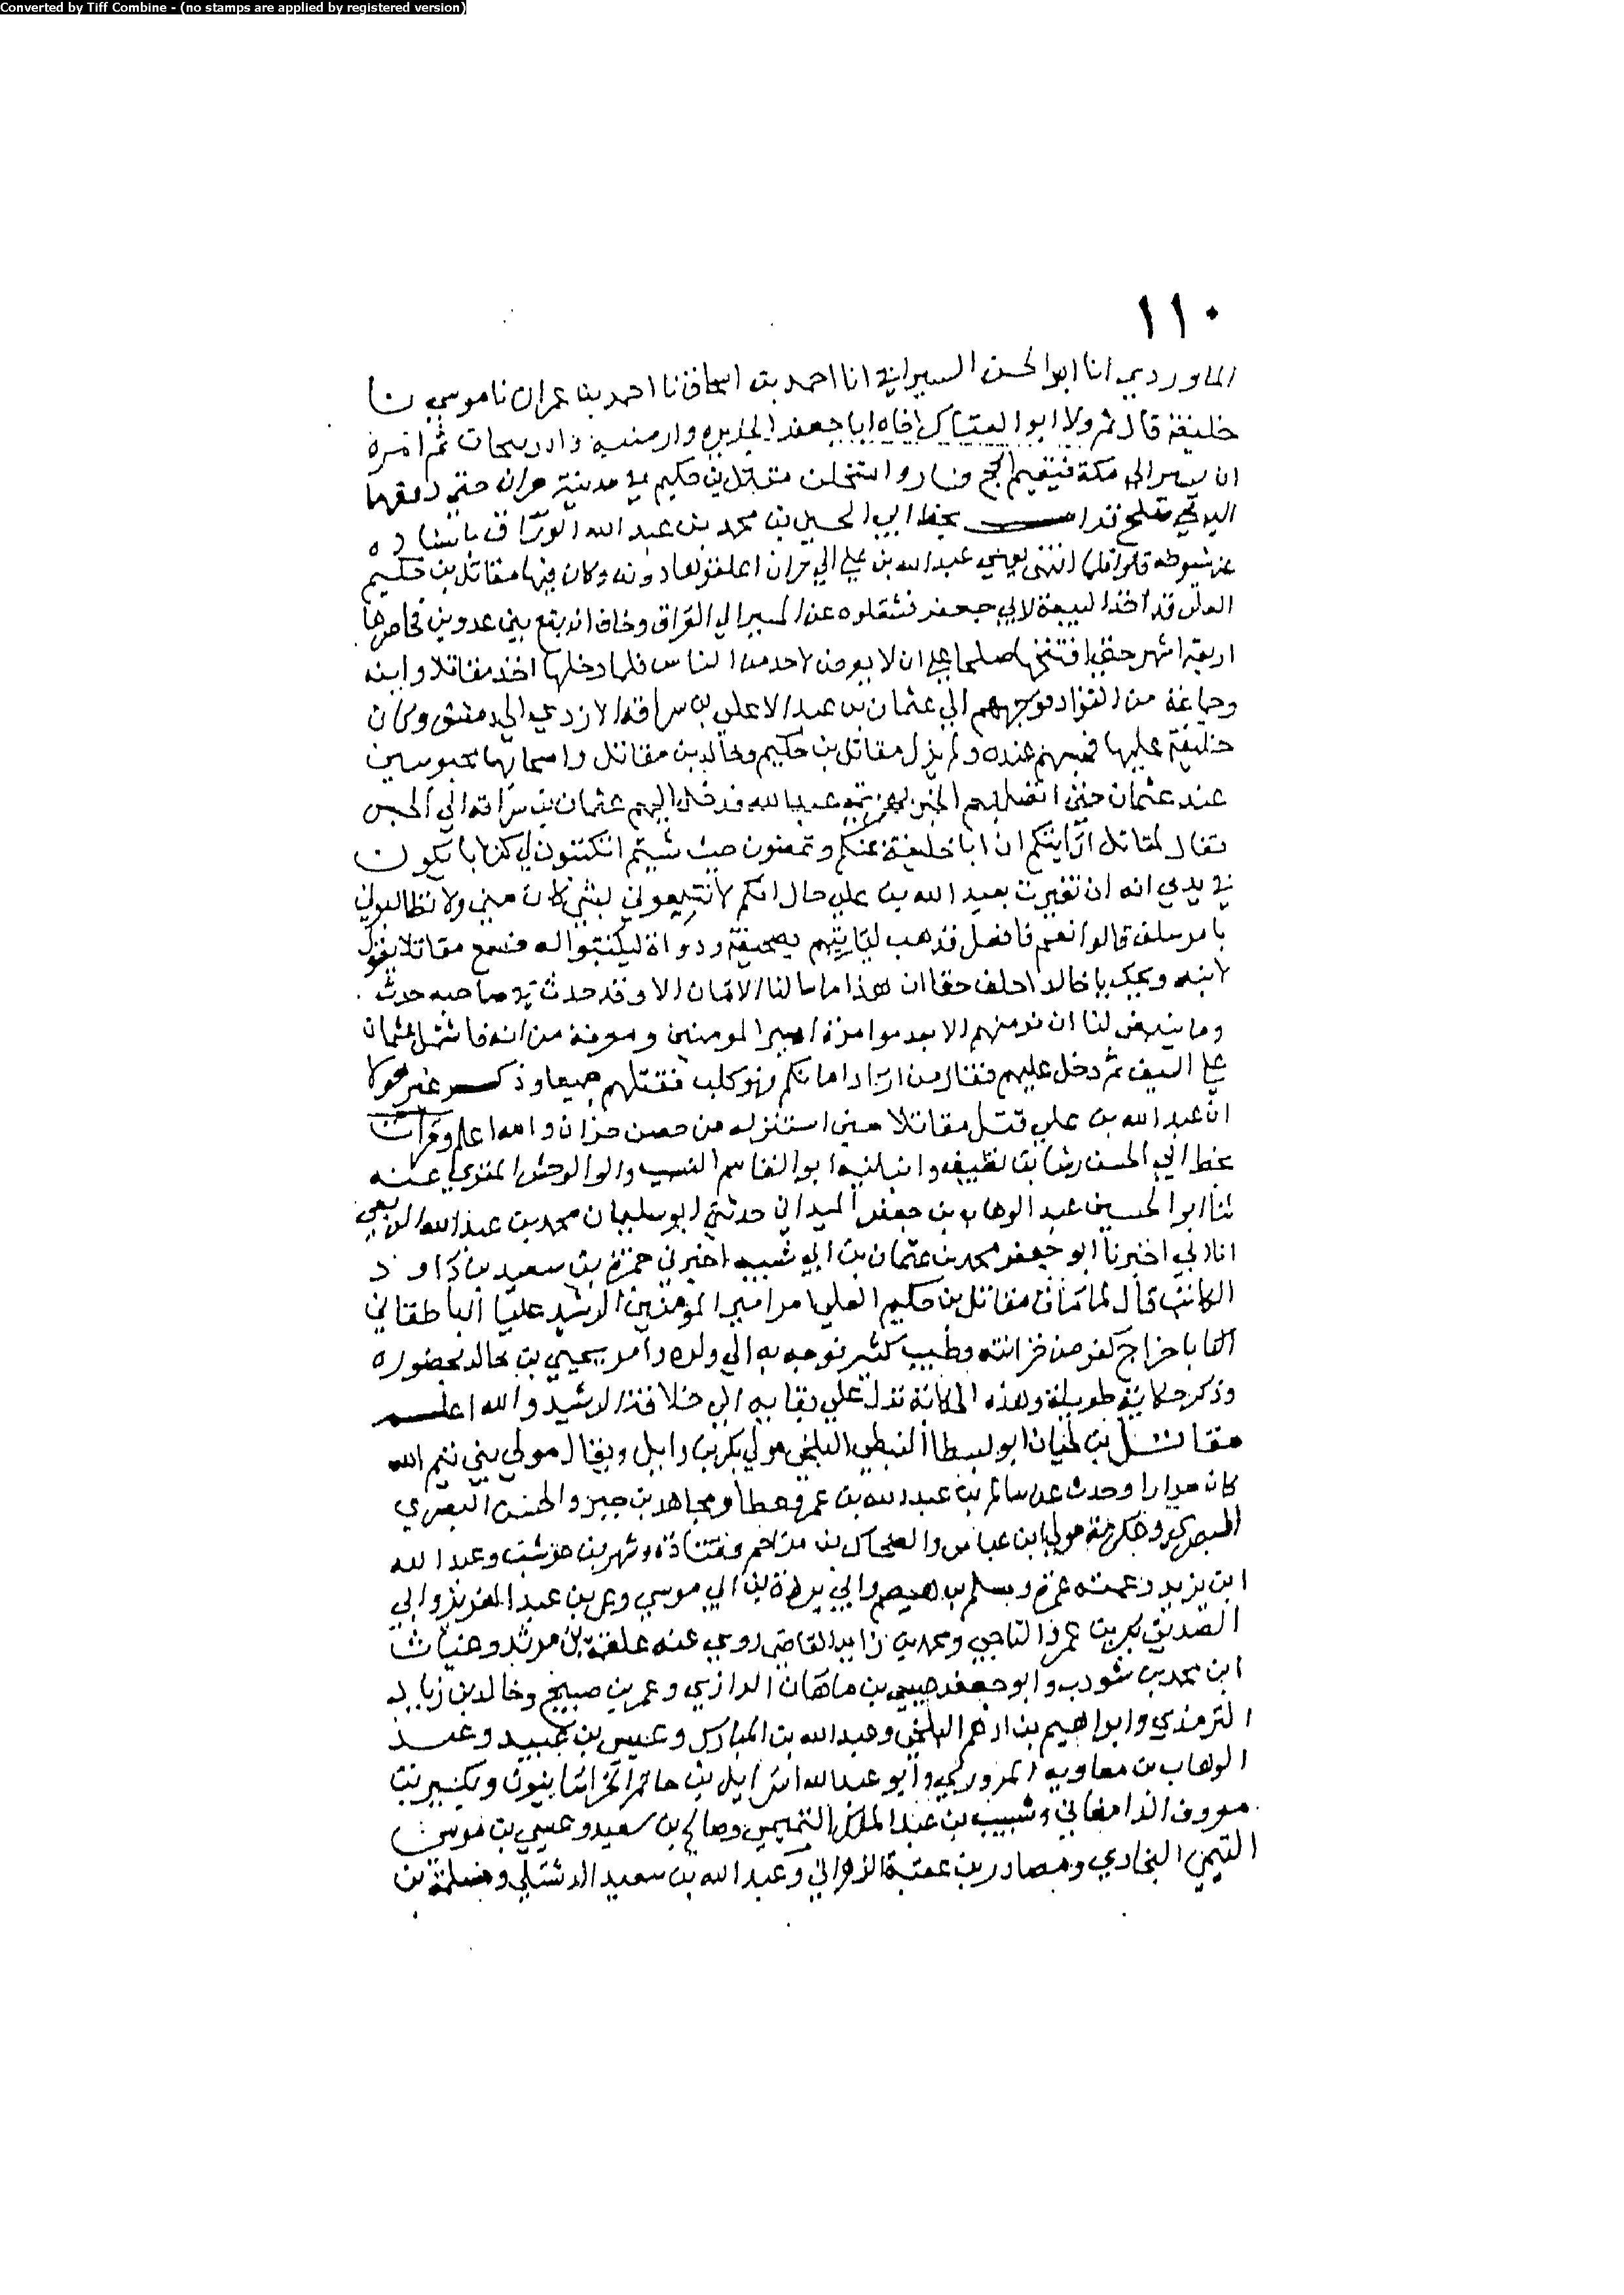 Converted by Tiff Combine - (no stamps are applied by registered version)
١١٠
الماوردي انا ابو الحسن السيرافي انا احمد بن اسحاق نا احمد بن عمران نا موسي نا
خليفة قال ثم ولا ابو العباس اخاه ابا جعفر الجزيره وارمنيه واذربيجان ثم امره
ان يسير الي مكة فيقيم الحج فسار واستخلف مقاتل بن حكيم في مدينة حران حتي
بخط ابي الحسين بن محمد بن عبد الله الوراق باسناده
عن شيوخه قالوا فلما انتهي يعني عبد الله بن علي الي حران اغلقوها دونه وكان فيها مقاتل بن حكيم
العكي قد اخذ البيعة لابي جعفر فشغلوه عن المسير الي العراق وخاف ان يقع بين عدوين فحاصرها
اربعة اشهر حتي افتتحها صلحا علي ان لا يعرض لاحد من الناس فلما دخلها اخذ مقاتلا وابنه
وجماعة من القواد فوجههم الي عثمان بن عبد الاعلي بن سراقة الازدي الي دمشق وكان
خليفة عليها فحبسهم عنده ولم يزل مقاتل بن حكيم وخالد بن مقاتل واصحابهما محبوسين
عند عثمان حتي اتصل بهم الخبر بهزيمة عبد الله فدخل اليهم عثمان بن سراقة الي الحبس
فقال لمقاتل ارايتكم ان انا خليت عنكم وتمضون حيث شيتم اتكتبون لي كتابا يكون
في يدي انه ان تغيرت بعبد الله بن علي حال انكم لا تتبعوني بشي كان مني ولا تطالبوني
بامر سلف قالوا نعم فافعل فذهب لياتيهم بصحيفة ودواة ليكتبوا له فسمع مقاتلا يقول
لابنه ويحك يا خالد احلف حقا ان هذا ما سالنا الامان الا وقد حدث في صاحبه حدث
وما ينبغي لنا ان نومنهم الا بعد موامرة امير المومنين ومعرفة من انه فاشتمل عثمان
علي السيف ثم دخل عليهم فقال من اراد امانكم فهو كلب فقتلهم جميعا وذكر غير هولا
ان عبد الله بن علي قتل مقاتلا حين استنزله من حصن حران والله اعلم وقرات
بخط ابي الحسن رشا بن نظيف وانبانيه ابو القاسم النسيب وابو الوحش المقري عنه
ثنا ابو الحسين عبد الوهاب بن جعفر الميداني حدثني ابو سليمان محمد بن عبد الله الربعي
انا ابي اخبرنا ابو جعفر محمد بن عثمان بن ابي شيبه اخبرني حمزة بن سعيد بن داود
الكاتب قال لما مات مقاتل بن حكيم العكي امر امير المومنين الرشيد عليا الباطقاني
باخراج كفن من خزانته وطيب كثير فوجه به الي ولده وامر يحيي بن خالد بحضوره
وذكر حكاية طويلة وهذه الحكاية تدل علي بقايه الي خلافة الرشيد والله اعلم
مقاتل بن حيان ابو بسطام النبطي البلخي مولي بكر بن وايل ويقال مولي بني تيم الله
وحدث عن سالم بن عبد الله بن عمر وعطا ومجاهد بن جبير والحسن البصري
وعكرمة مولي ابن عباس والضحاك بن مزاحم وقتادة وشهر بن حوشب وعبد الله
ابن بريد وعمته عمرة ومسلم بن هيصم وابي بردة بن ابي موسي وعمر بن عبد العزيز وابي
الصديق بكر بن عمرو الناجي ومحمد بن زايد القاضي روي عنه علقمة بن مرثد وعتاب
ابن محمد بن شوذب وابو جعفر عيسي بن ماهان الرازي وعمر بن صبيح وخالد بن زياد
الترمذي وابراهيم بن ادهم البلخي وعبد الله بن المبارك وعيسي بن عبيد وعبد
الوهاب بن معاويه المروزي وابو عبد الله اسرايل بن حاتم الخراسانيون وبكير بن
معروف الدامغاني وشبيب بن عبد الملك التميمي وصالح بن سعيد وعيسي بن موسي
التيمي البخاري ومصادر بن عقبة الزهراني وعبد الله بن سعيد الدشتكي ومسلمة بن